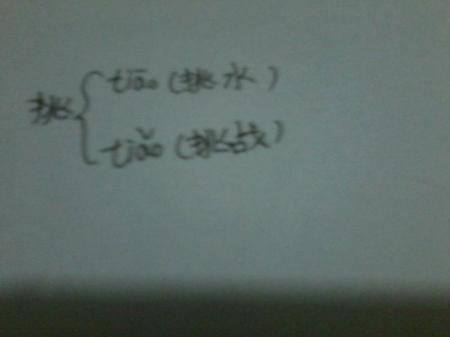 tiāo (挑水)
挑{
tiǎo (挑战)